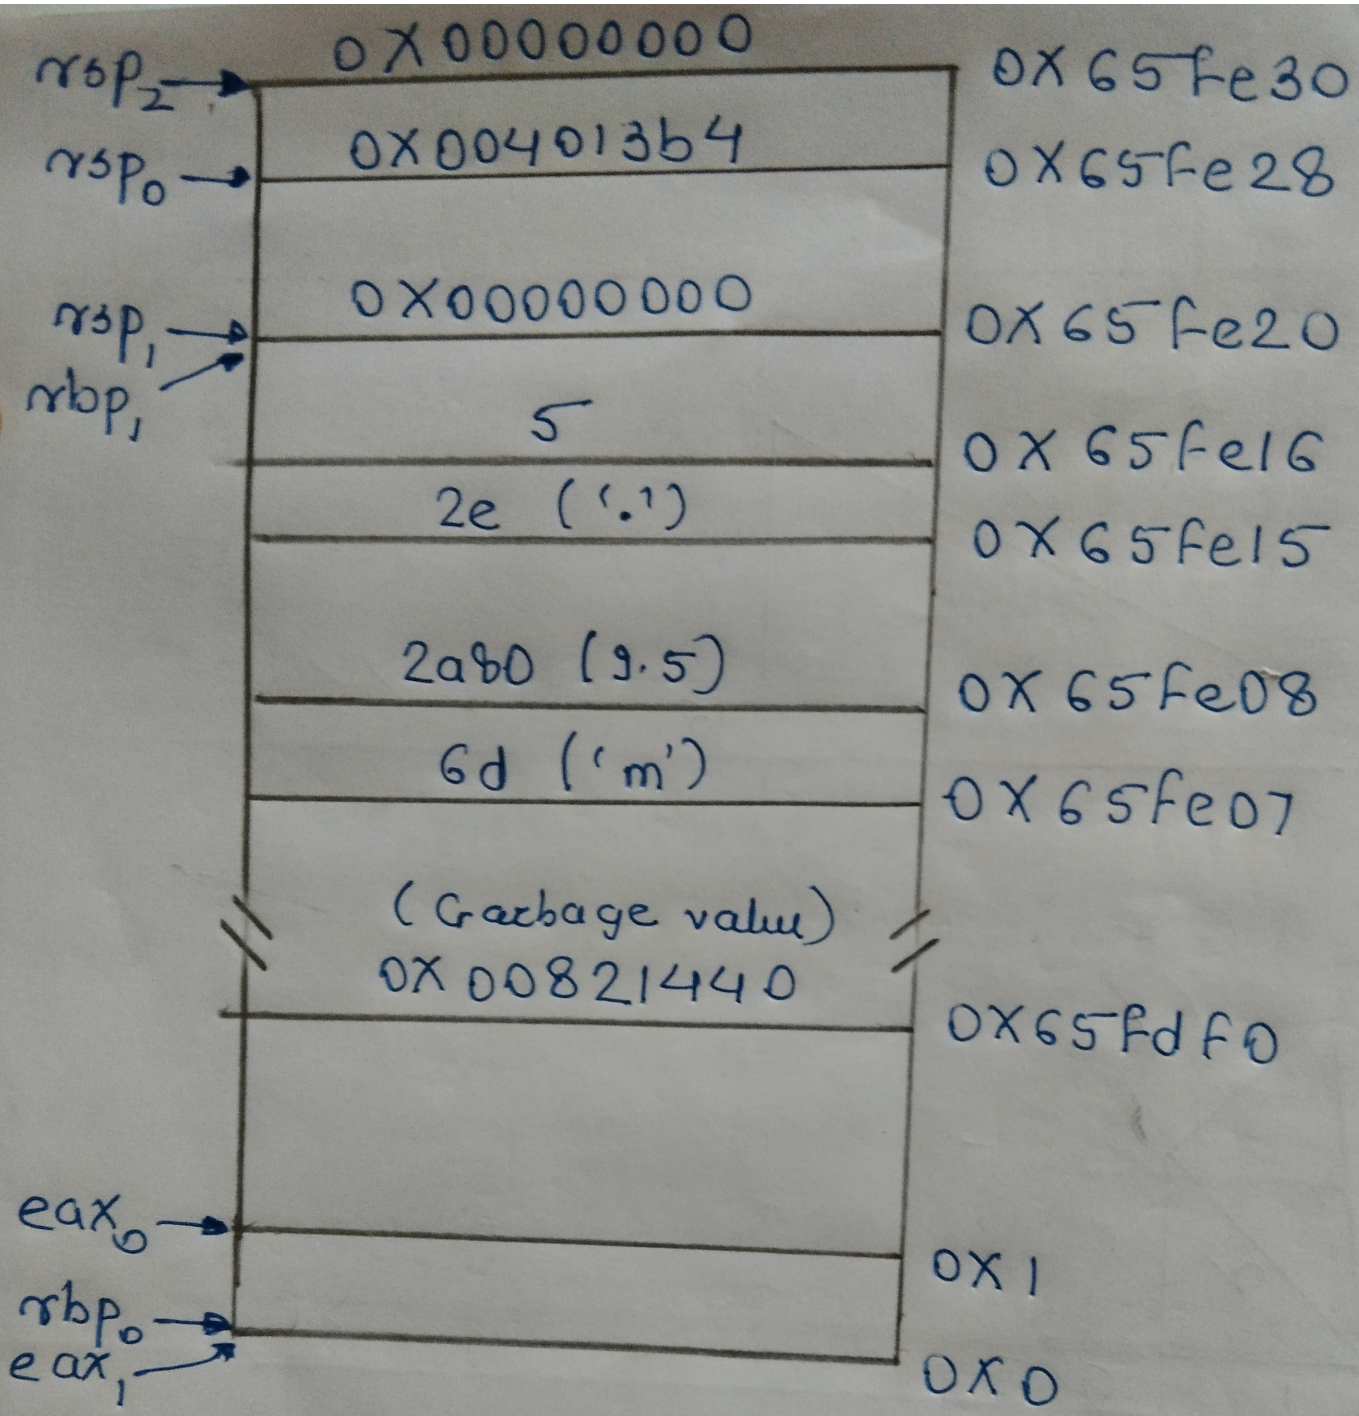 0X00000000
rsp2 0X65fe30
0X004013b4
rsp0 0X65fe28
0X00000000
rsp1 0X65fe20
rbp1
5
0X65fe16
2e ('.')
0X65fe15
2a80 (9.5)
0X65fe08
6d ('m')
0X65fe07
(Garbage value)
0X00821440
0X65fdf0
eax0
0X1
rbp0
eax1
0X0